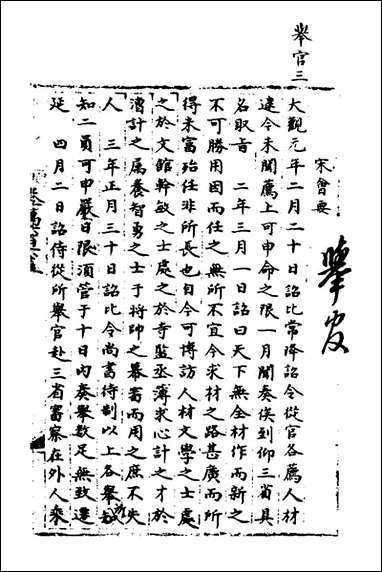 舉官三
宋會要
大觀元年二月二十日詔比常降詔令從官各薦人材
違今未聞薦上可申命之限一月聞奏俟到仰三省具
名取旨　二年三月一日詔曰天下無全材作而新之
不可勝用因而任之無所不宜今求材之路甚廣而所
得未富殆任非所長也自今可博訪人材文學之士處
之於文館幹敏之士處之於寺監丞薄求心計之才於
漕計之屬養智勇之士于將帥之幕審而用之庶不失
人　三年正月三十日詔比令尚書待制以上各舉所
知二員可申嚴日限須管于十日內奏舉數足無致遷
延　四月二日詔侍從所舉官赴三省審察在外人乘